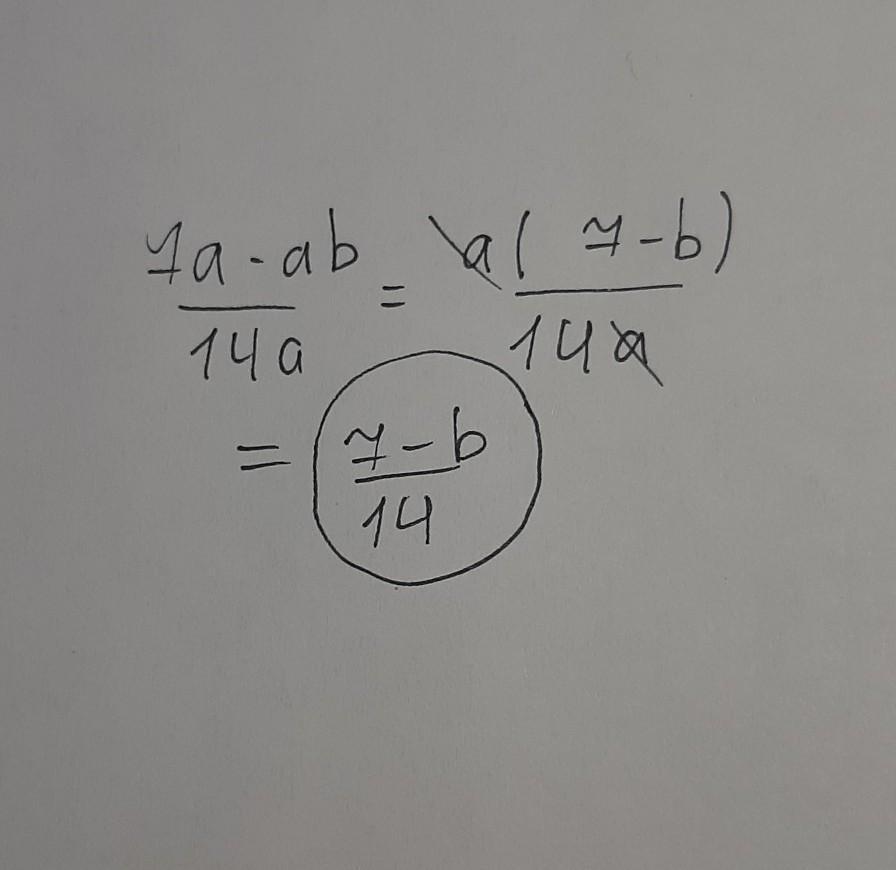 7a-ab/14a = a(7-b)/14a
= 7-b/14